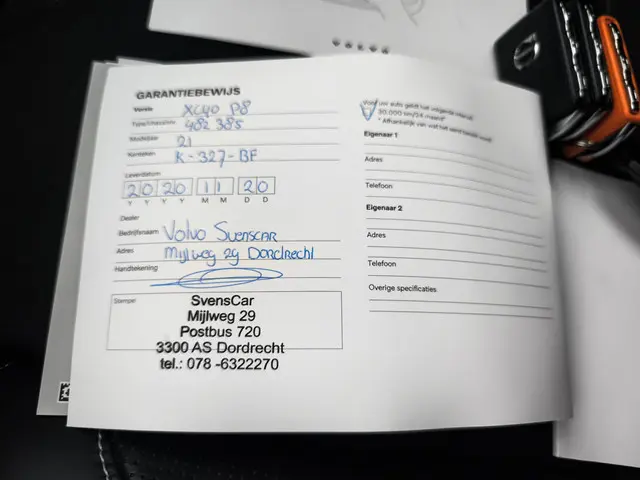 VOLVO
GARANTIEBEWIJS
Versie XC40 P8
Type/Chassisnr. 482385
Modeljaar 21
Kenteken K-327-BF
Leverdatum
2020 11 20
Y Y Y Y M M D D
Dealer
Bedrijfsnaam Volvo SvensCar
Adres Mijlweg 29 Dordrecht
Handtekening
Stempel
SvensCar
Mijlweg 29
Postbus 720
3300 AS Dordrecht
tel.: 078 -6322270
Voor uw auto geldt het volgende interval:
30.000 km/24 maand*
* Afhankelijk van wat het eerst bereikt wordt
Eigenaar 1
Adres
Telefoon
Eigenaar 2
Adres
Telefoon
Overige specificaties